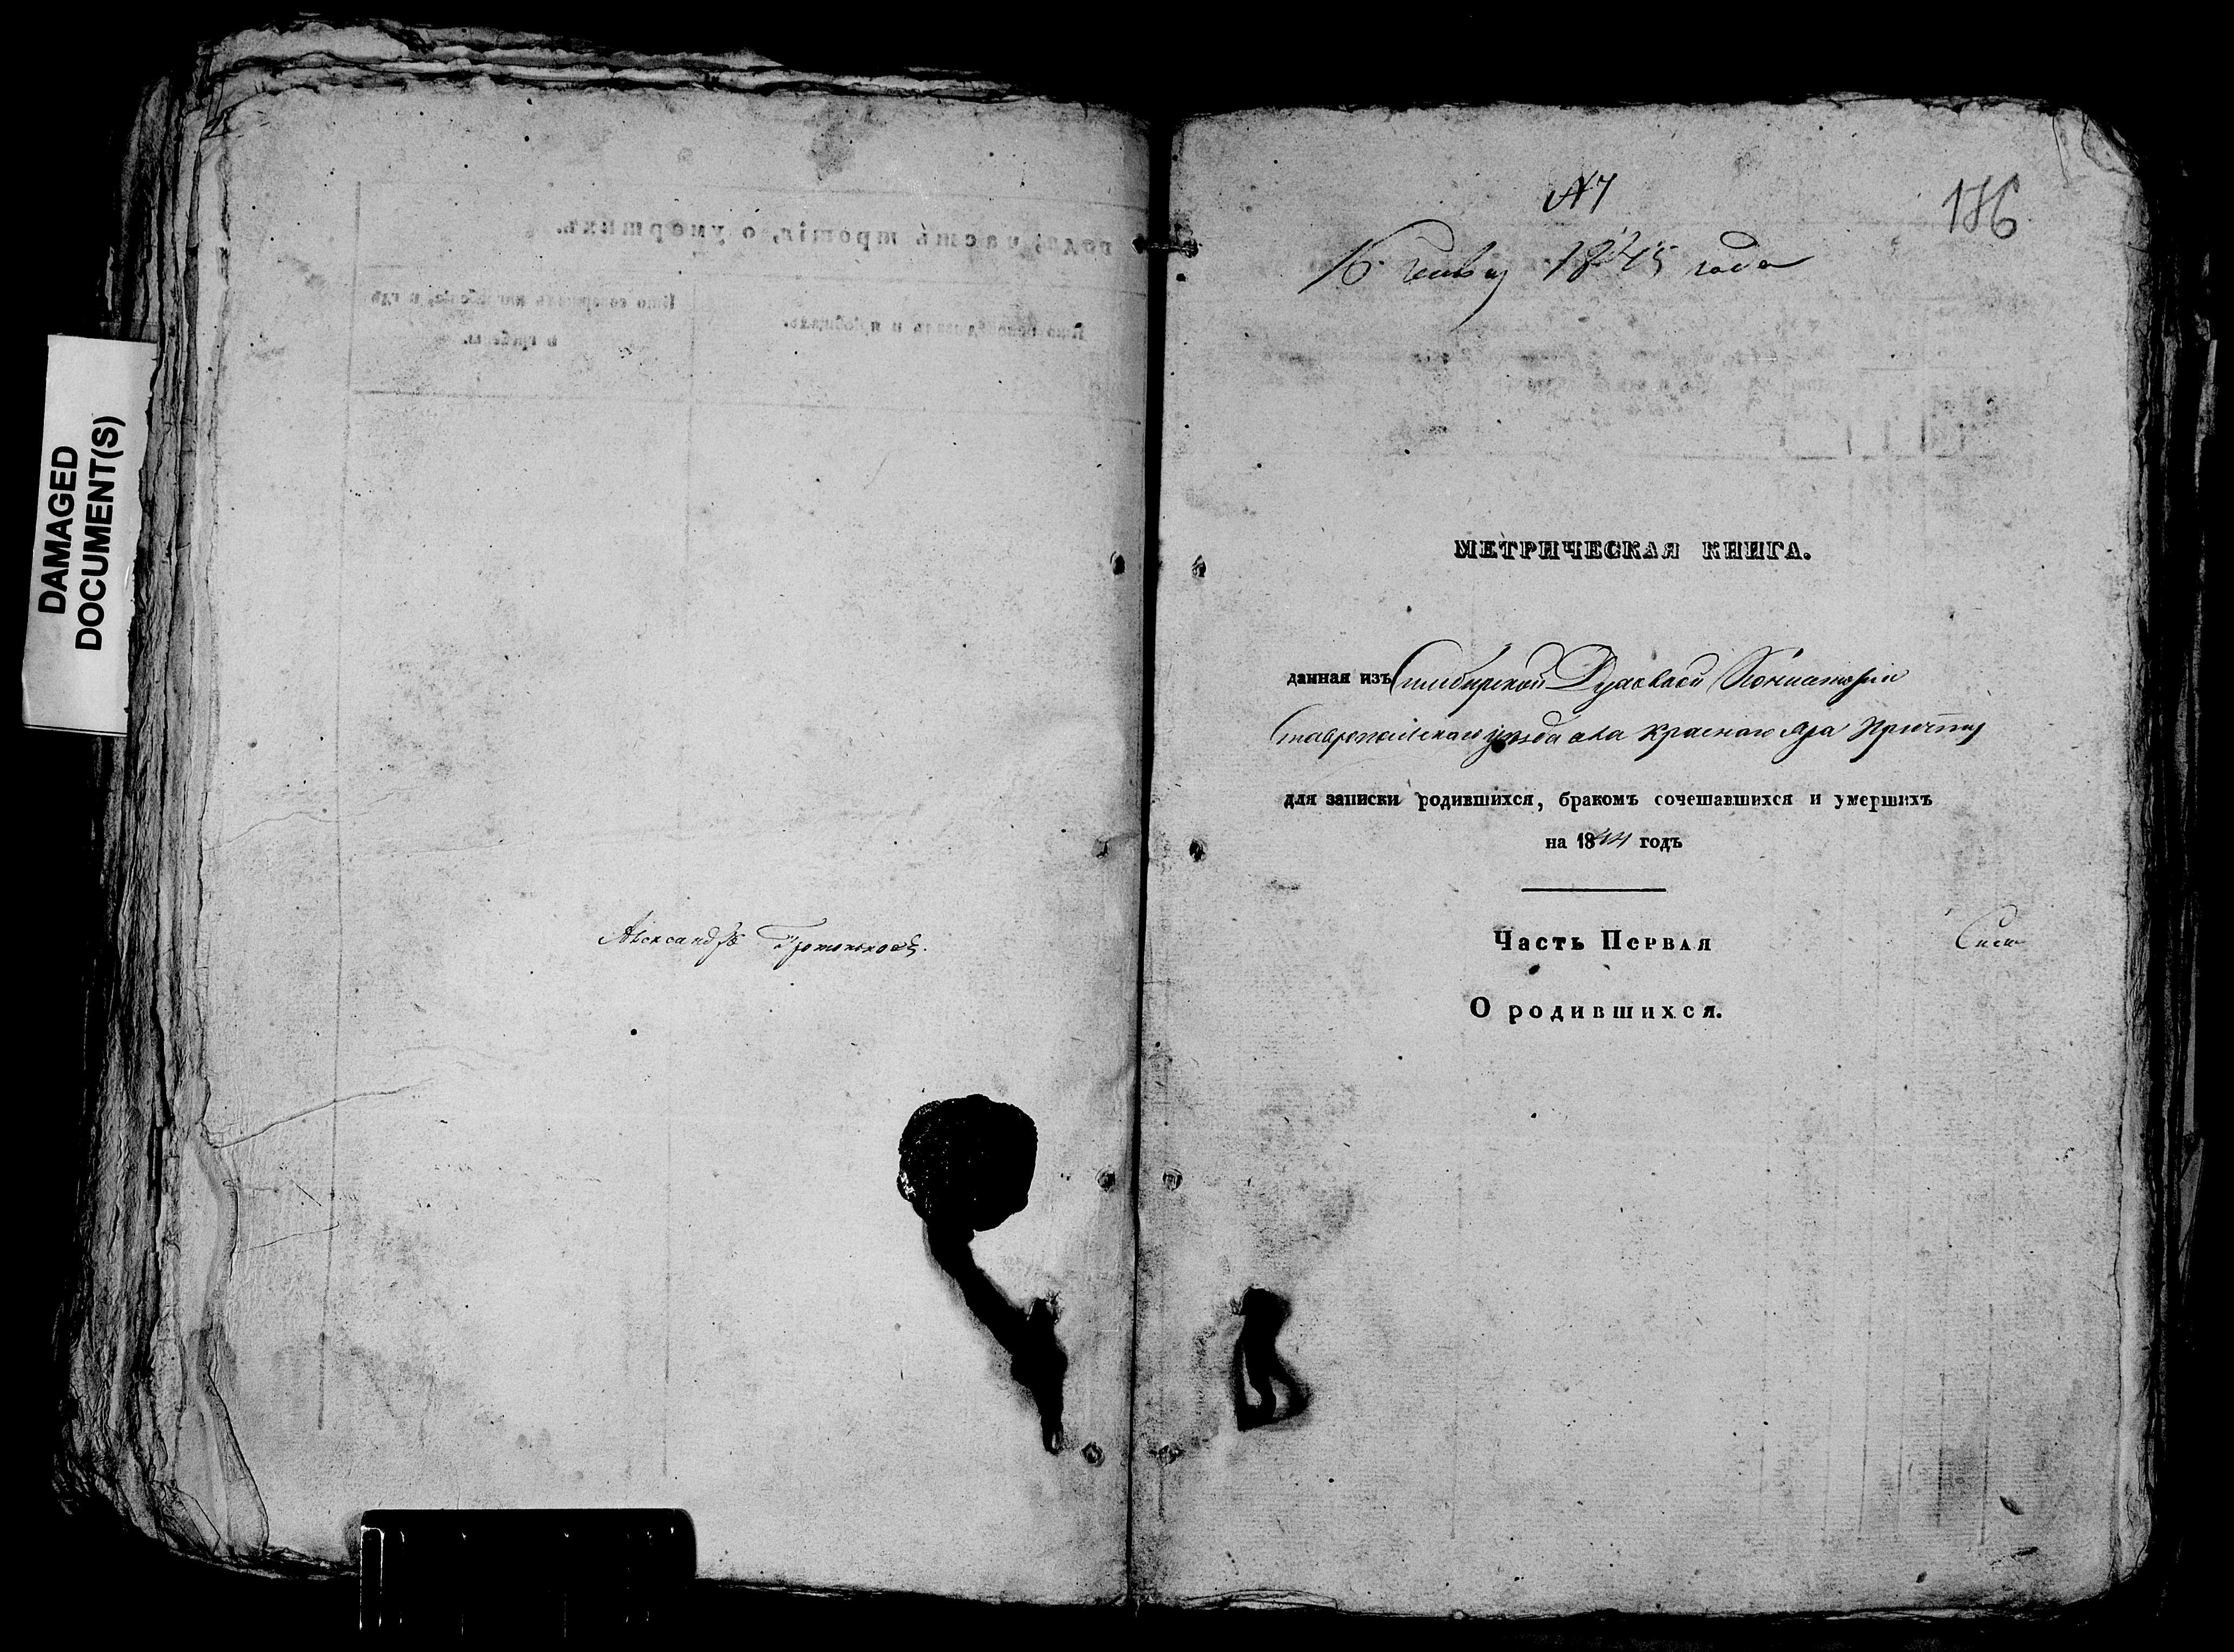 DAMAGED
DOCUMENT(S)
годъ, часть третія, о умершихъ.
Кто исповѣдывалъ и пріобщалъ.
Кто совершалъ погребеніе, и гдѣ
погребены.
Александръ
№ 7
186
16 Генв. 1845 года
МЕТРИЧЕСКАЯ КНИГА.
данная изъ Симбирской Духовной Консисторіи
Ставропольскаго уѣзда села Краснаго Яра Причту
для записки родившихся, бракомъ сочетавшихся и умершихъ
на 1844 годъ
Часть Первая
О родившихся.